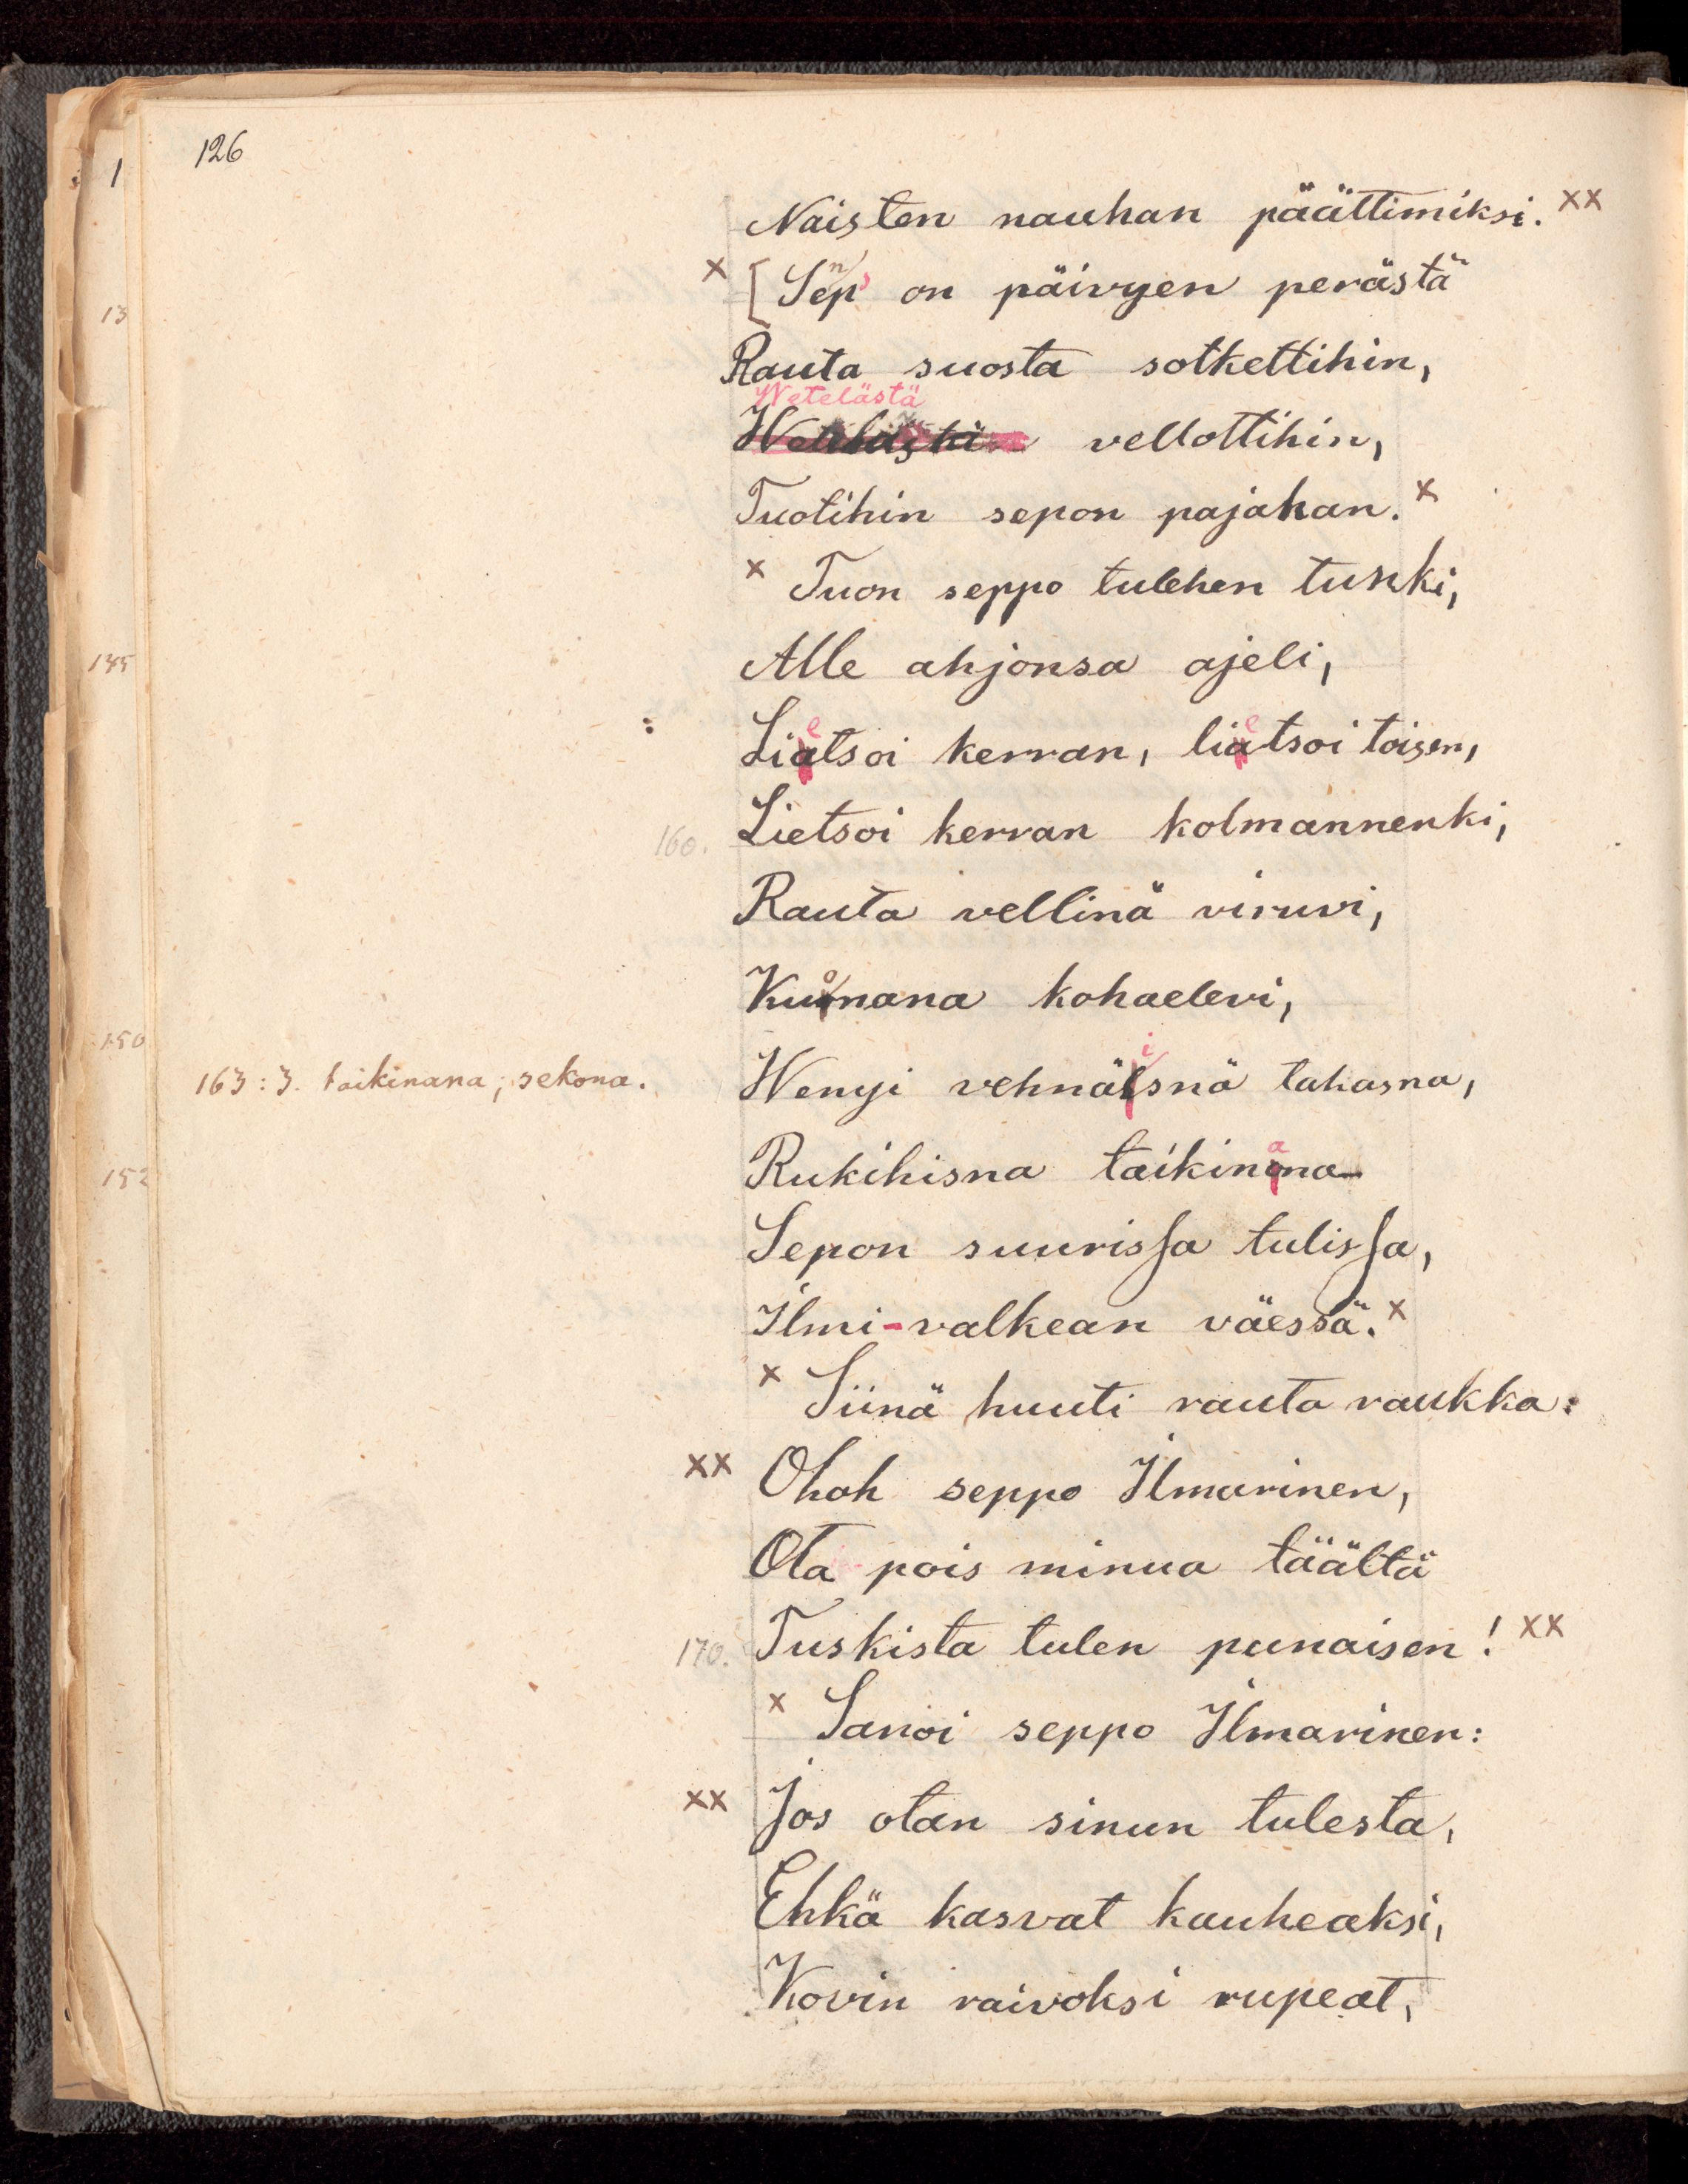 126
Naisten nauhan päättimiksi. xx
x [Sen on päivyen perästä
Rauta suosta sotkettihin,
Wetelästä
vellottihin,
Tuotihin sepon pajahan. x
x Tuon seppo tulehen tunki,
Alle ahjonsa ajeli,
Lietsoi kerran, lietsoi toisen,
160. Lietsoi kerran kolmannenki,
Rauta vellinä viruvi,
Kuonana kohaelevi,
163: 3. taikinana, sekona. Wenyi vehnäisnä tahasna,
Rukihisna taikinana
Sepon suurissa tulissa,
Ilmi-valkean väessä. x
x Siinä huuti rauta raukka:
xx Ohoh seppo Ilmarinen,
Ota pois minua täältä
170. Tuskista tulen punaisen! xx
x Sanoi seppo Ilmarinen:
xx Jos otan sinun tulesta,
Ehkä kasvat kauheaksi,
Kovin raivoksi rupeat,
13
145
150
152